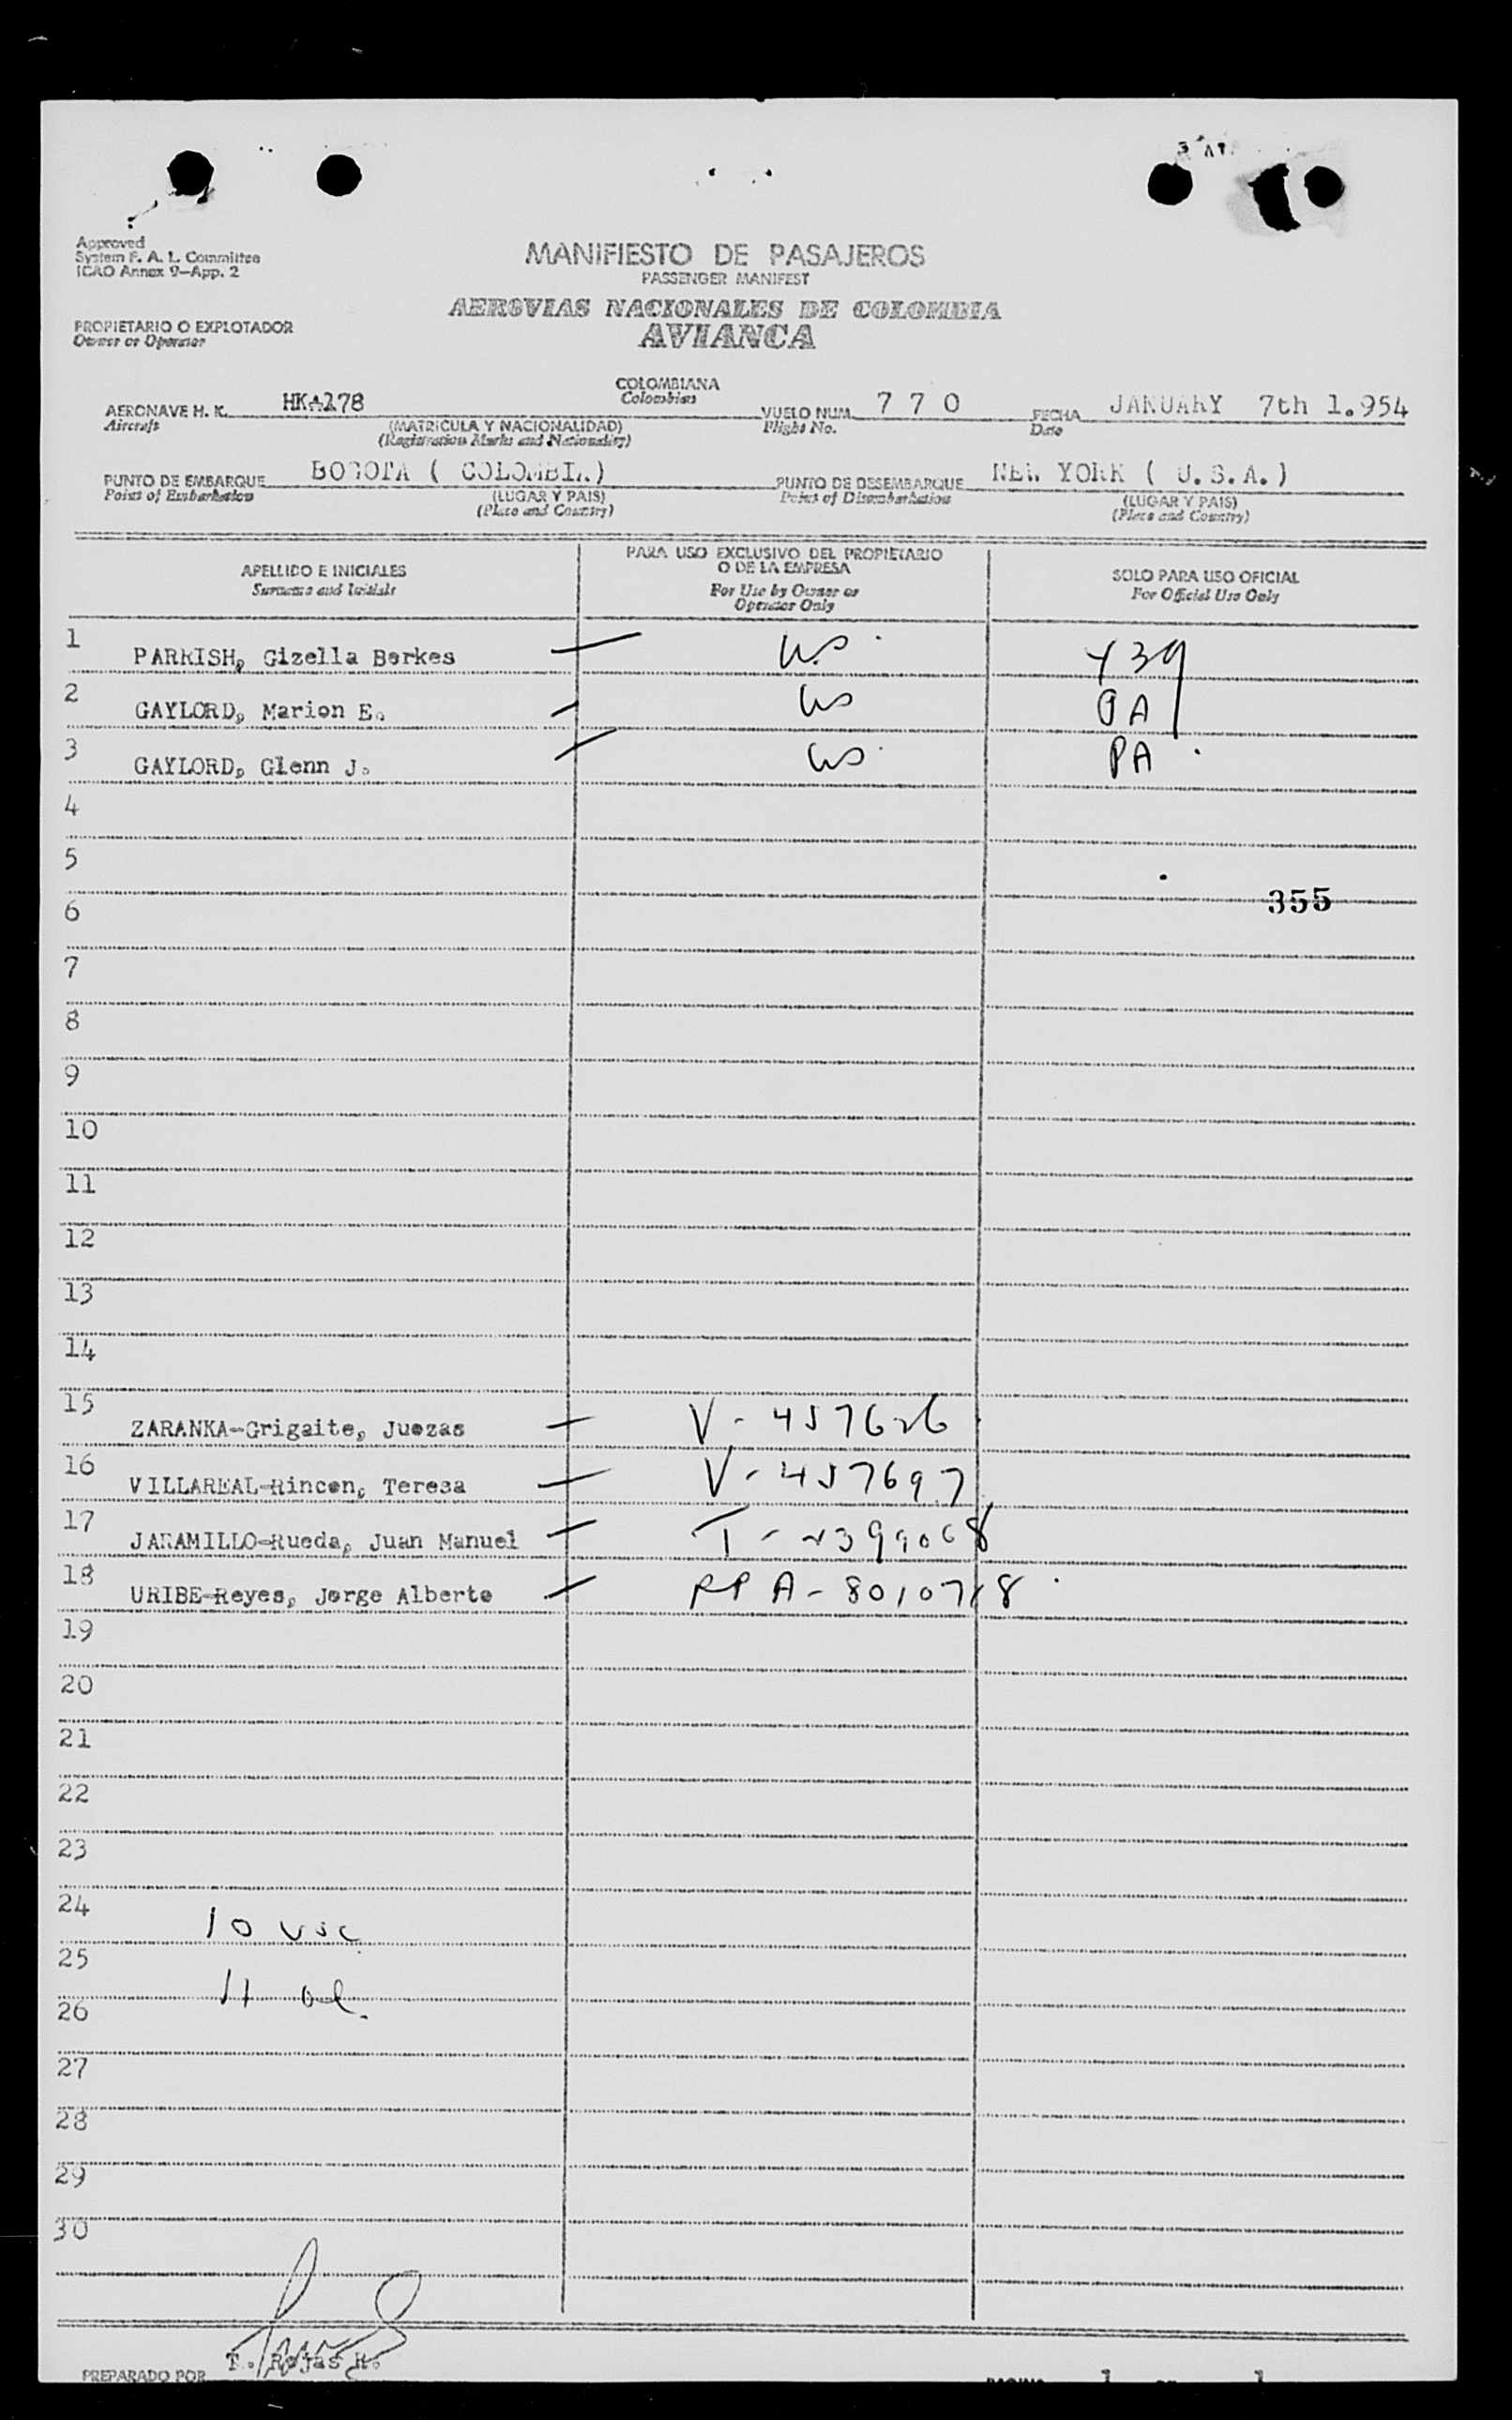 Approved
System F. A. L. Committee
ICAO Annex 9-App. 2
MANIFIESTO DE PASAJEROS
PASSENGER MANIFEST
AEROVIAS NACIONALES DE COLOMBIA
AVIANCA
PROPIETARIO O EXPLOTADOR
Owner or Operator
COLOMBIANA
Colombian
AERONAVE H. K. HK-178 VUELO NUM. 7 7 0 FECHA JANUARY 7th 1.954
Aircraft (MATRICULA Y NACIONALIDAD) Flight No. Date
(Registration Marks and Nationality)
PUNTO DE EMBARQUE BOGOTA ( COLOMBIA) PUNTO DE DESEMBARQUE NEW YORK ( U.S.A.)
Point of Embarkation (LUGAR Y PAIS) Point of Disembarkation (LUGAR Y PAIS)
(Place and Country) (Place and Country)
APELLIDO E INICIALES PARA USO EXCLUSIVO DEL PROPIETARIO O DE LA EMPRESA SOLO PARA USO OFICIAL
Surnames and Initials For Use by Owner or Operator Only For Official Use Only
1 PARRISH, Gizella Berkes US Y39
2 GAYLORD, Marion E. US PA
3 GAYLORD, Glenn J. US PA
4
5
6 355
7
8
9
10
11
12
13
14
15 ZARANKA-Grigaite, Juozas V-457626
16 VILLAREAL-Rincon, Teresa V-457697
17 JARAMILLO-Rueda, Juan Manuel T-2399068
18 URIBE-Reyes, Jorge Alberto RP A-8010718
19
20
21
22
23
24 10 USC
25
26 11 al
27
28
29
30
PREPARADO POR T. Rojas H. PAGINA 1 1